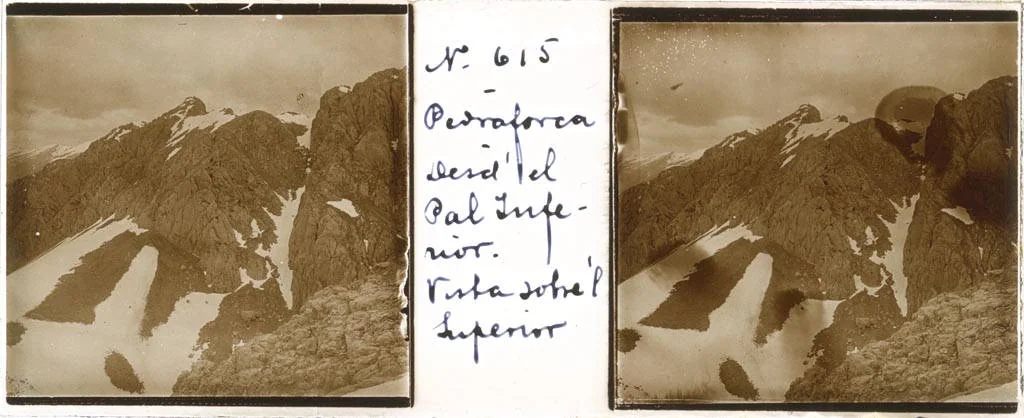 Nº 615
Pedraforca
Desd' el
Pal Infe-
rior.
Vista sobre'l
Superior